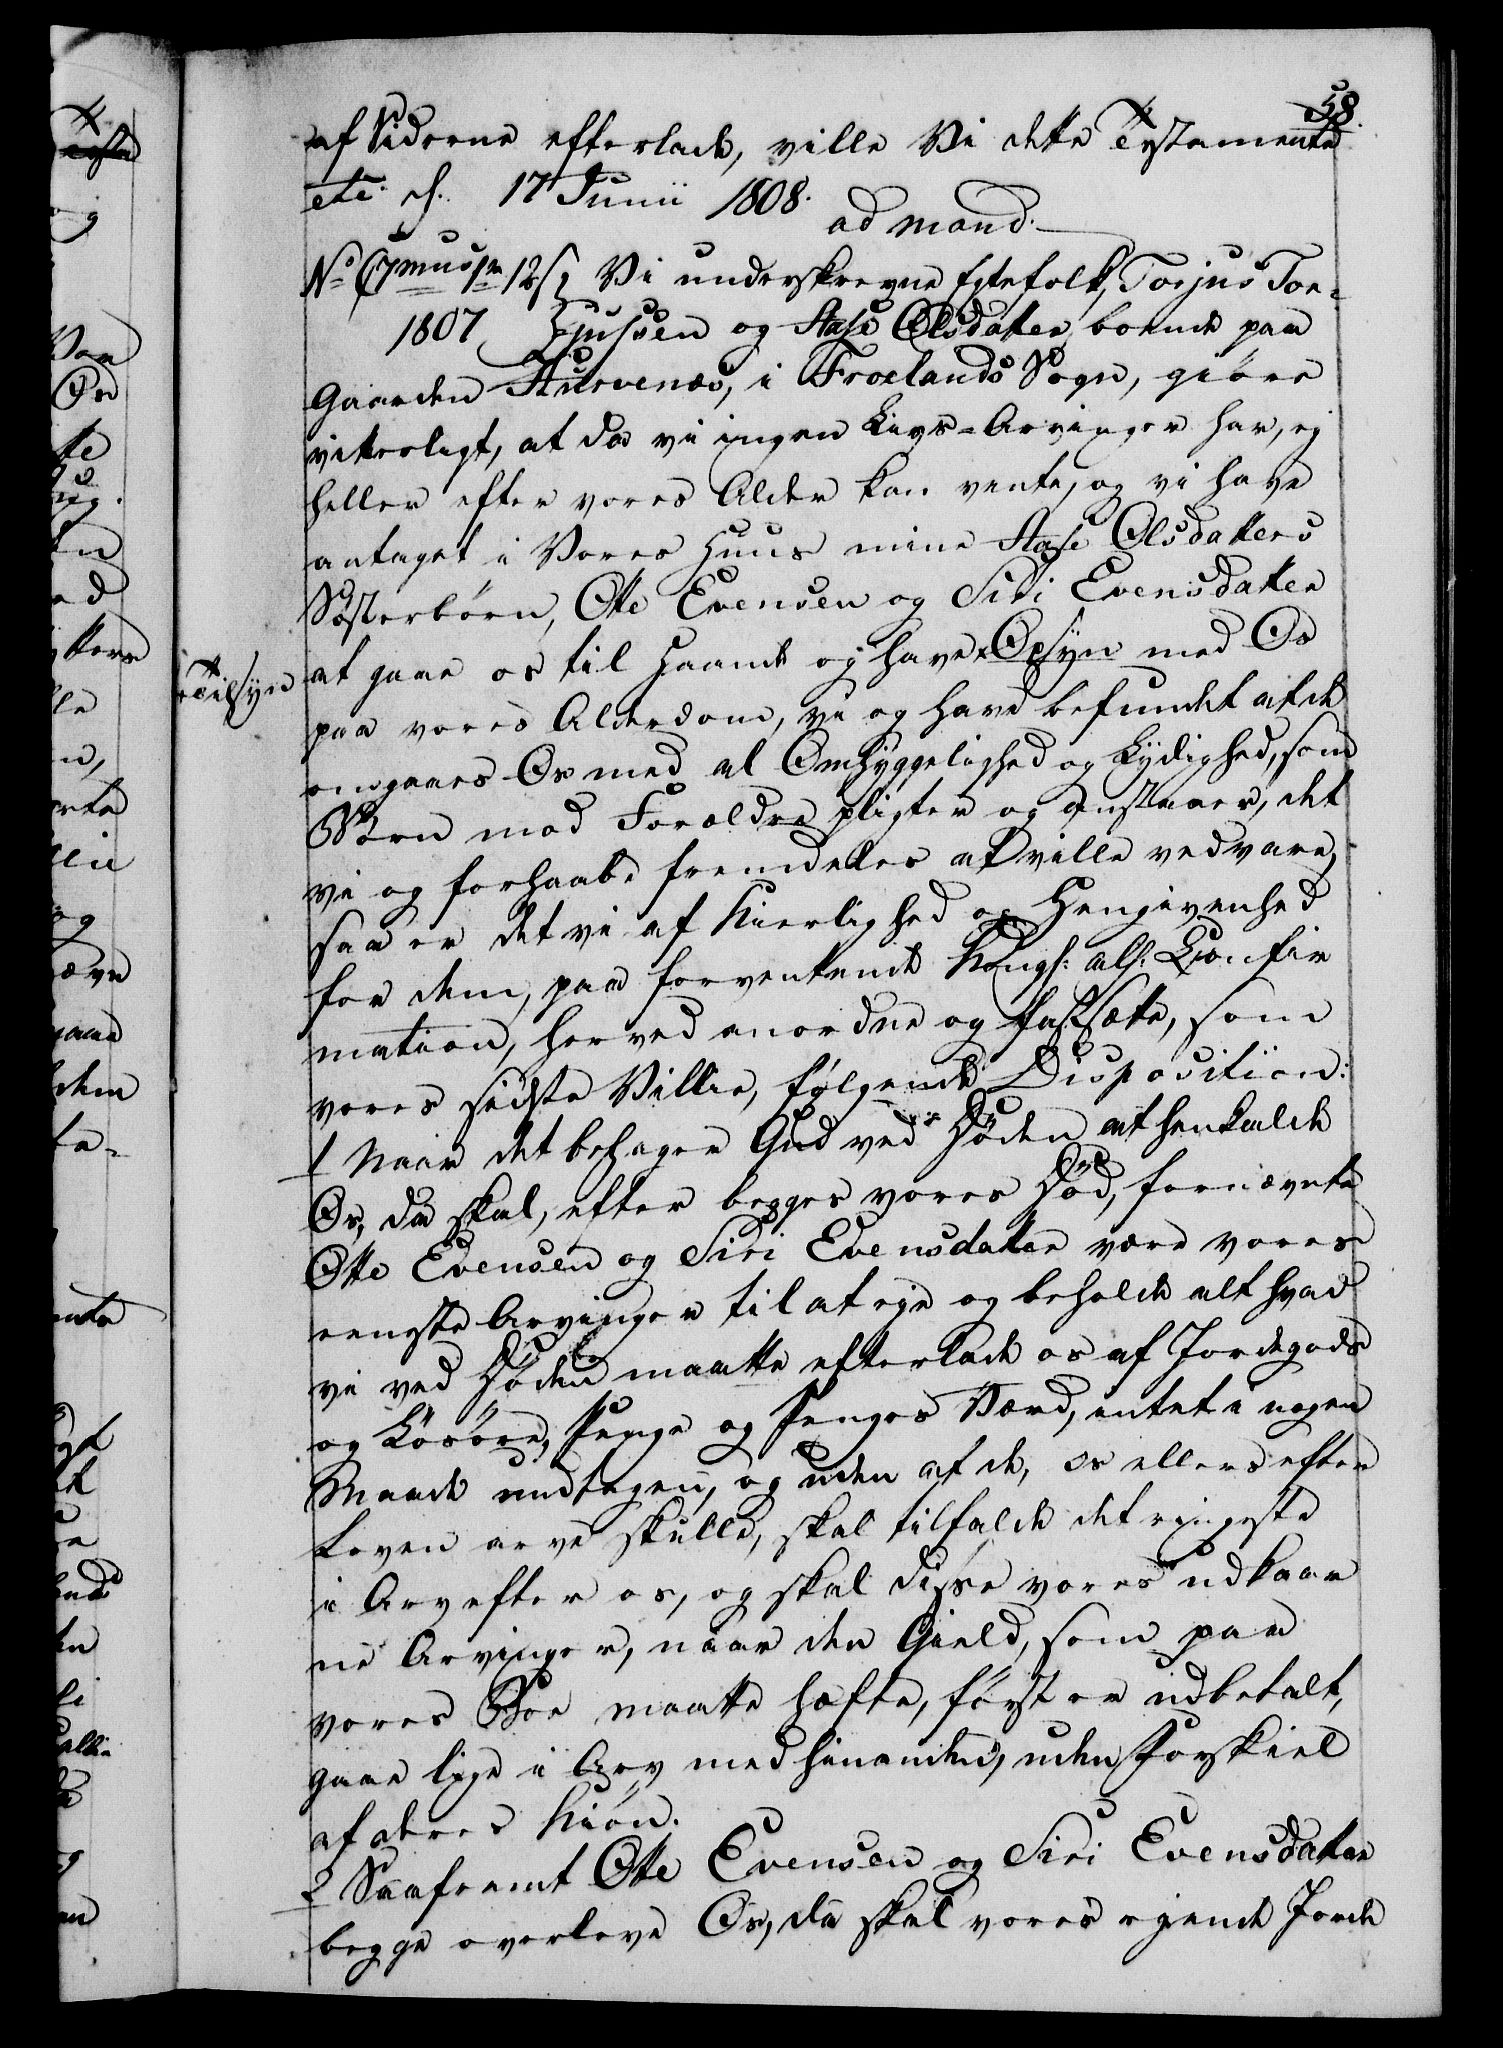 58.
af Siderne efterlade, ville Vi dette Testamente
etc. d. 17 Junii 1808.
ad mand.
Vi underskrevne Egtefolk, Torjus Tor-
1807 gjussen og Aase Olsdatter, boende paa
Gaarden, i Froelands Sogn, giöre
vitterligt, at da vi ingen Livs-Arvinger har, ej
heller efter vores Alder kan vente, og vi have
antaget i Vores Huus mine Aase Olsdatters
Sösterbörn, Otte Evensen og Siri Evensdatter
at gaae os til Haande og have Opsyn med Os
Tilsyn
paa vores Alderdom, vi og have befundet at de
omgaaes Os med al Omhyggelighed og Lydighed, som
Börn mod Forældre pligter og anstaaer, det
vi og forhaabe fremdeles at ville vedvare,
saa er det vi af Kierlighed og Hengivenhed
for dem, paa forventende Kongl: all: Confir
mation, herved anordne og fastsætte, som
vores sidste Villie, fölgende Disposition:
1 Naar det behager Gud ved Döden at henkalde
Os, da skal, efter begges vores Död, fornævnte
Otte Evensen og Siri Evensdatter være vores
eeneste Arvinger til at eje og beholde alt hvad
vi ved Döden maatte efterlade os af Jordegods
og Lösöre, Penge og Penges Værd, intet i nogen
Maade undtagen, og uden at de, os ellers efter
Loven arve skulle, skal tilfalde det ringeste
i Arv efter os, og skal disse vores udkaar
ne Arvinger, naar den Gield, som paa
vores Boe maatte hæfte, först er udbetalt,
gaae lige i Arv med hinanden, uden Forskiel
af deres Kiön.
2 Saafremt Otte Evensen og Siri Evensdatter
begge overleve Os, da skal vores ejende Jorde